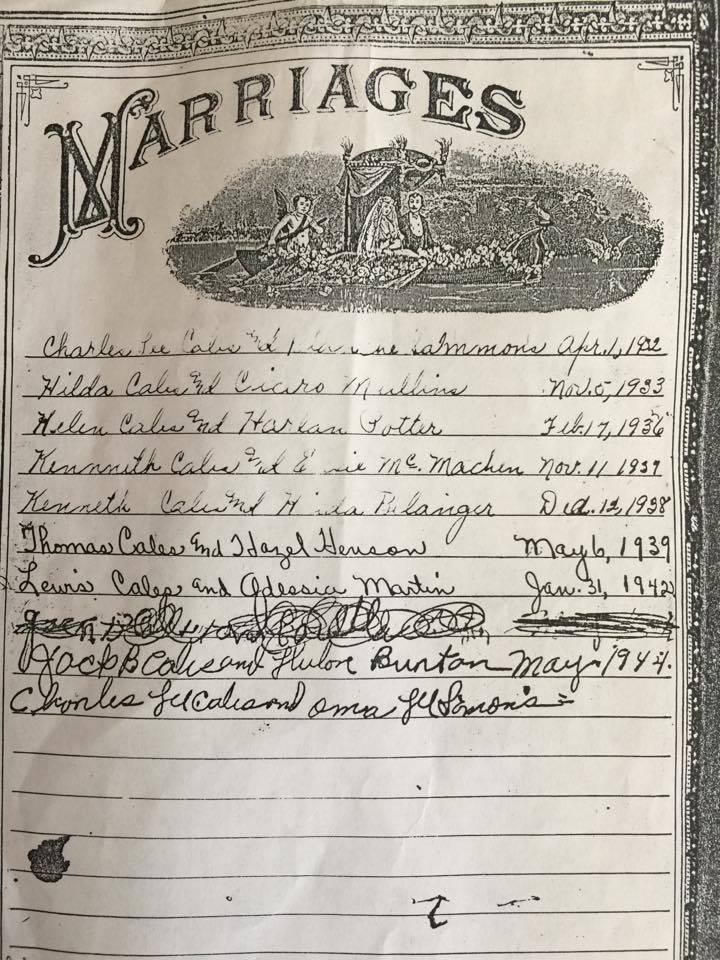 MARRIAGES
Charles Lee Cales and Sammons Apr. 1, 1922
Hilda Cales and Cicero Mullins Nov. 5, 1933
Helen Cales and Harlan Potter Feb. 17, 1936
Kennneth Cales and Mc. Machen Nov. 11 1937
Kenneth Cales and Belanger Dec. 12, 1938
Thomas Cales and Hazel Henson May 6, 1939
Lewis Cales and Odessia Martin Jan. 31, 1942
Jack B Cales and Burton May 1944.
Charles Cales and oma Simon's =